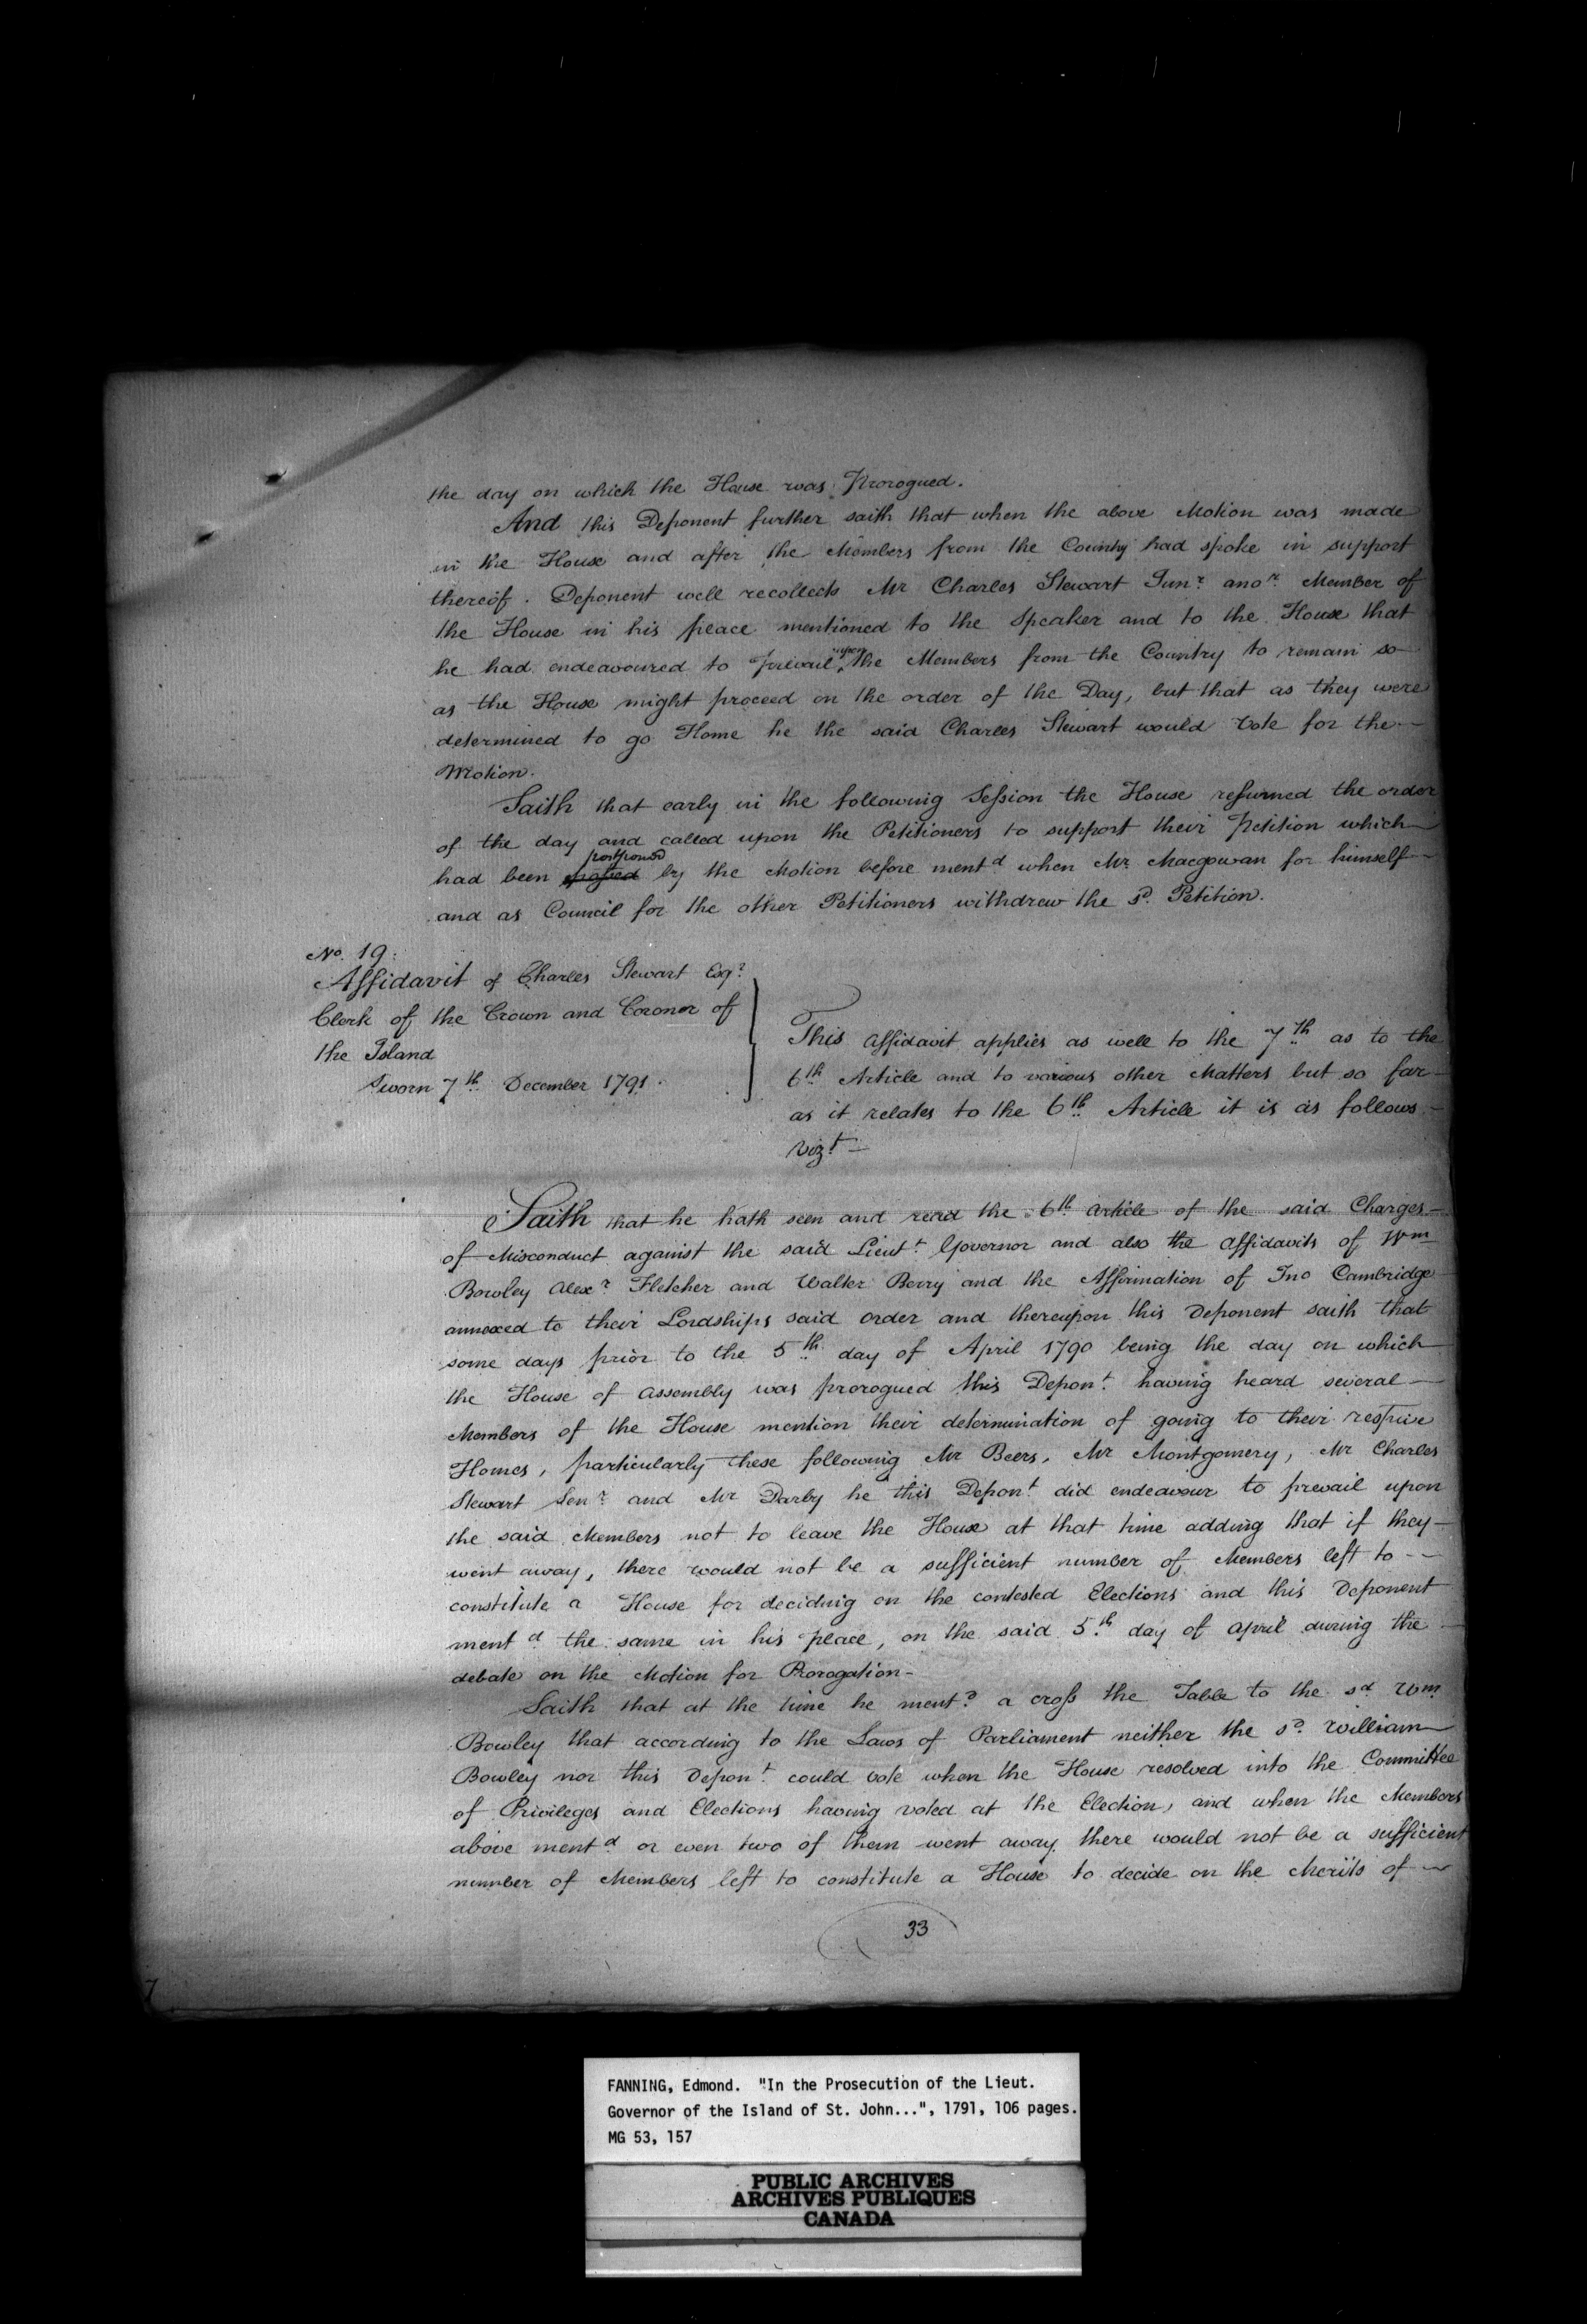 the day on which the House was Prorogued.
And this Deponent further saith that when the above Motion was made
in the House and after the Members from the Country had spoke in support
thereof. Deponent well recollects Mr Charles Stewart Junr. anor. Member of
the House in his place mentioned to the Speaker and to the House that
he had endeavoured to prevail upon the Members from the Country to remain so
as the House might proceed on the order of the Day, but that as they were
determined to go Home he the said Charles Stewart would Vote for the—
Motion.
Saith that early in the following Session the House resumed the order
of the day and called upon the Petitioners to support their Petition which—
postponed
had been by the Motion before mentd when Mr. Macgowan for himself—
and as Council for the other Petitioners withdrew the sd. Petition.
No. 19.
Affidavit of Charles Stewart Esqr.
Clerk of the Crown and Coroner of
the Island
Sworn 7th. December 1791.
This affidavit applies as well to the 7th as to the
6th Article and to various other Matters but so far—
as it relates to the 6th Article it is as follows—
Vizt.—
Saith that he hath seen and read the 6th Article of the said Charges—
of Misconduct against the said Lieut. Governor and also the affidavits of Wm
Bowley Alexr. Fletcher and Walter Berry and the Affirmation of Jno Cambridge
annexed to their Lordships said order and thereupon this Deponent saith that
some days prior to the 5th. day of April 1790 being the day on which
the House of Assembly was prorogued this Depont. having heard several—
Members of the House mention their determination of going to their respive
Homes, particularly these following Mr Beers, Mr Montgomery, Mr Charles
Stewart Senr. and Mr Darby he this Depont did endeavour to prevail upon
the said Members not to leave the House at that time adding that if they—
went away, there would not be a sufficient number of Members left to—
constitute a House for deciding on the contested Elections and this Deponent
mentd the same in his place, on the said 5th. day of April during the—
debate on the Motion for Prorogation—
Saith that at the time he mentd. a cross the Table to the sd Wm.
Bowley that according to the Laws of Parliament neither the sd. William
Bowley nor this Depont. could vote when the House resolved into the Committee
of Privileges and Elections having voted at the Election, and when the Members
above mentd or even two of them went away there would not be a sufficient
number of Members left to constitute a House to decide on the Merits of—
33
FANNING, Edmond. "In the Prosecution of the Lieut.
Governor of the Island of St. John...", 1791, 106 pages.
MG 53, 157
PUBLIC ARCHIVES
ARCHIVES PUBLIQUES
CANADA